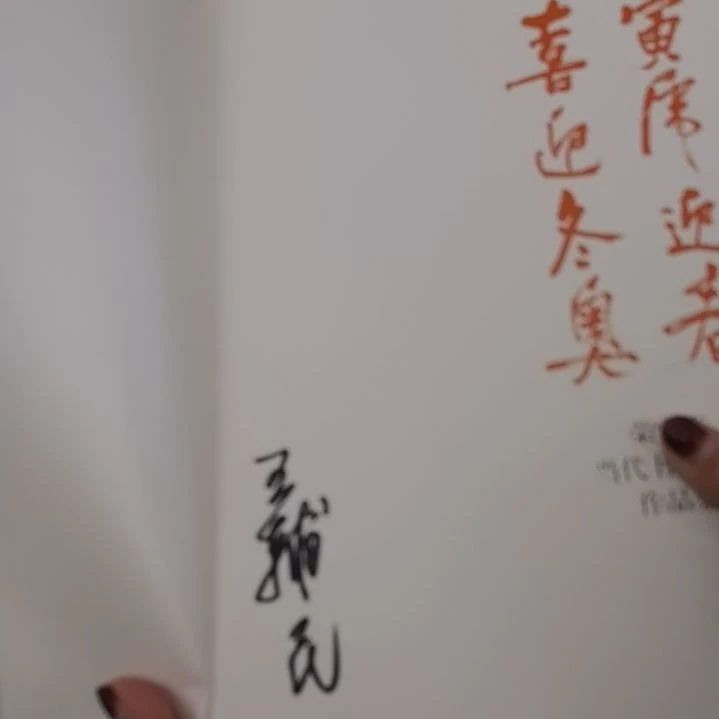 寅虎迎春
喜迎冬奥
当代
作品
王辅民